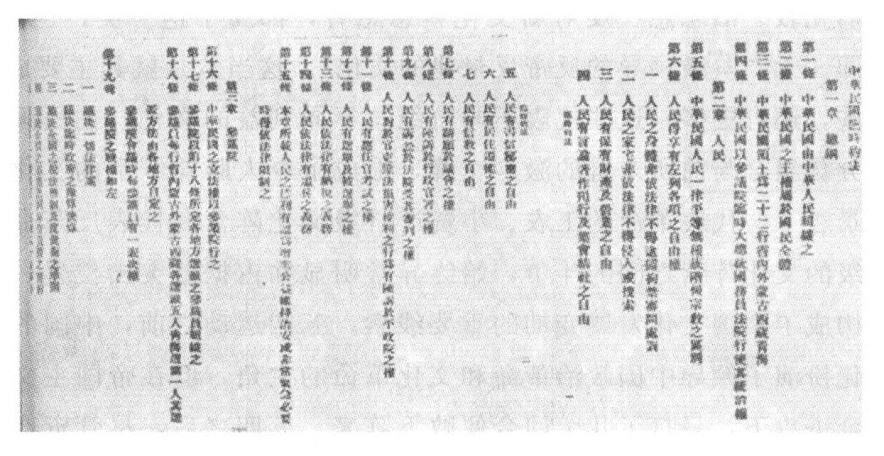 中華民國臨時約法
第一章　總綱
第一條　中華民國由中華人民組織之
第二條　中華民國之主權屬於國民全體
第三條　中華民國領土為二十二行省內外蒙古西藏青海
第四條　中華民國以參議院臨時大總統國務員法院行使其統治權
第二章　人民
第五條　中華民國人民一律平等無種族階級宗教之區別
第六條　人民得享有左列各項之自由權
一　人民之身體非依法律不得逮捕拘禁審問處罰
二　人民之家宅非依法律不得侵入或搜索
三　人民有保有財產及營業之自由
四　人民有言論著作刊行及集會結社之自由
臨時約法
臨時約法
五　人民有書信秘密之自由
六　人民有居住遷徙之自由
七　人民有信教之自由
第七條　人民有請願於議會之權
第八條　人民有陳訴於行政官署之權
第九條　人民有訴訟於法院受其審判之權
第十條　人民對於官吏違法損害權利之行為有陳訴於平政院之權
第十一條　人民有應任官考試之權
第十二條　人民有選舉及被選舉之權
第十三條　人民依法律有納稅之義務
第十四條　人民依法律有服兵之義務
第十五條　本章所載人民之權利有認為增進公益維持治安或非常緊急必要
時得依法律限制之
第三章　參議院
第十六條　中華民國之立法權以參議院行之
第十七條　參議院以第十八條所定各地方選派之參議員組織之
第十八條　參議員每行省內蒙古外蒙古西藏各選派五人青海選派一人其選
派方法由各地方自定之
參議院會議時每參議員有一表決權
第十九條　參議院之職權如左
一　議決一切法律案
二　議決臨時政府之預算決算